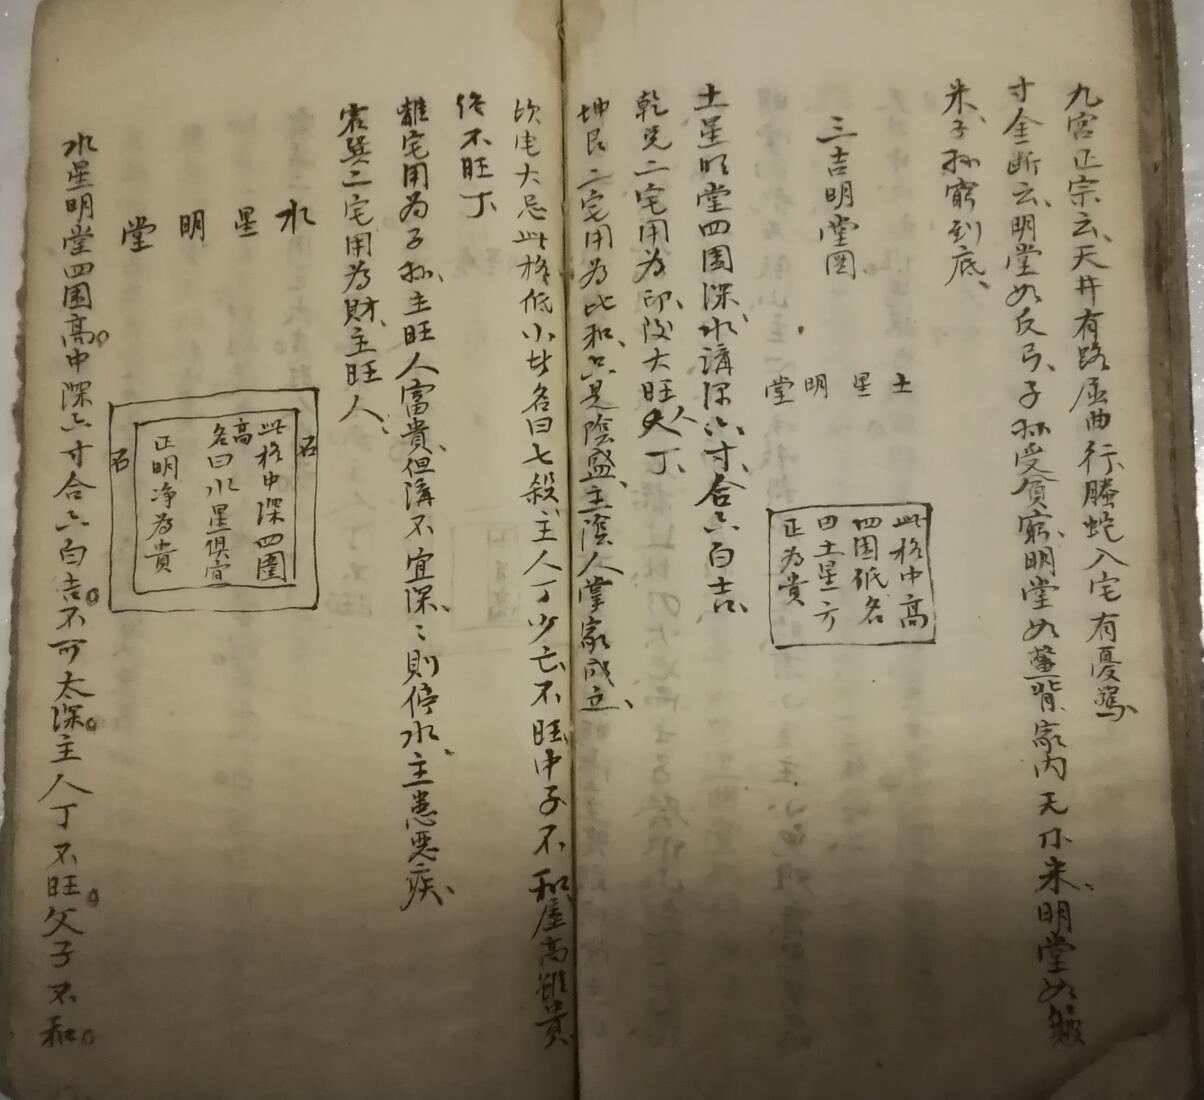 九宮正宗云、天井有路屈曲行、螣蛇入宅有憂驚、
寸金斷云、明堂如反弓、子孫受貧窮、明堂如鱉背、家內無
米、明堂如
米、子孫窮到底、
三吉明堂圖
土星明堂
此格中高
四围低名
曰土星方
正為貴
土星明堂四围深水溝深六寸、合六白吉、
乾兌二宅用為印、陂大旺人丁、
坤艮二宅用為比和、只是陰盛、主陰人掌家成立、
坎宅大忌此格低小、此名曰七殺、主人丁少亡、不旺中子不和、屋高雖貴
終不旺丁
離宅用為子孫、主旺人富貴、但溝不宜深、〻則停水、主患惡疾、
震巽二宅用為財、主旺人、
水星明堂
石
石
此格中深四圍
高
名曰水星俱宜
正明净為貴
水星明堂四围高。中深六寸合六白吉。不可太深。主人丁不旺。父子不和。